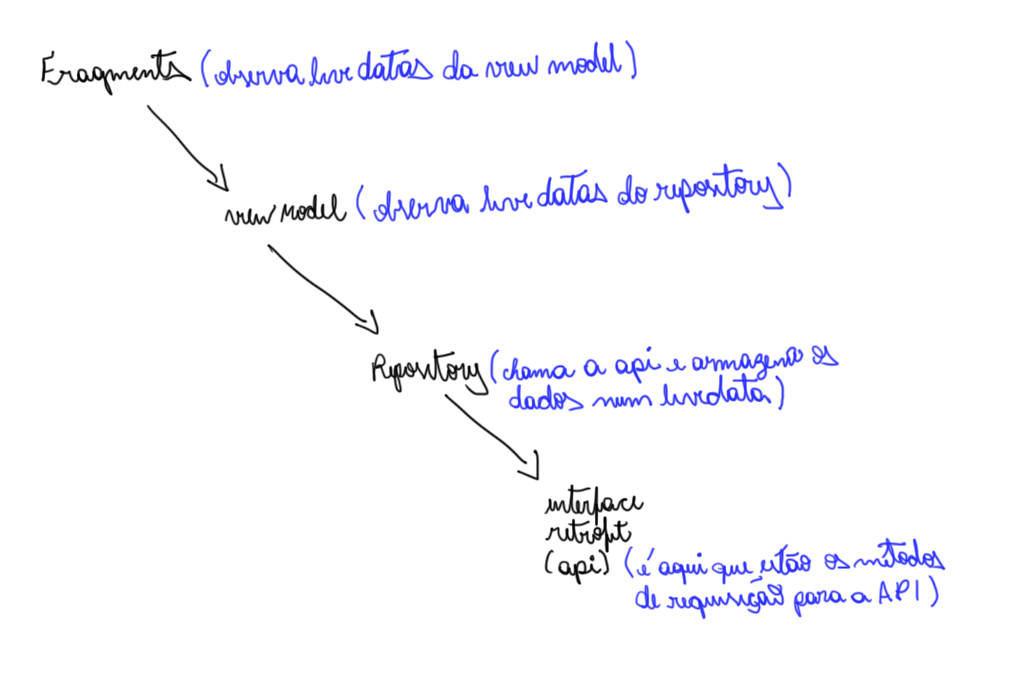 Fragments (observa livedatas da view model)
view model (observa livedatas do repository)
Repository (chama a api e armazena os
dados num livedata)
interface
retrofit
(api) (é aqui que estão os métodos
de requisição para a API)